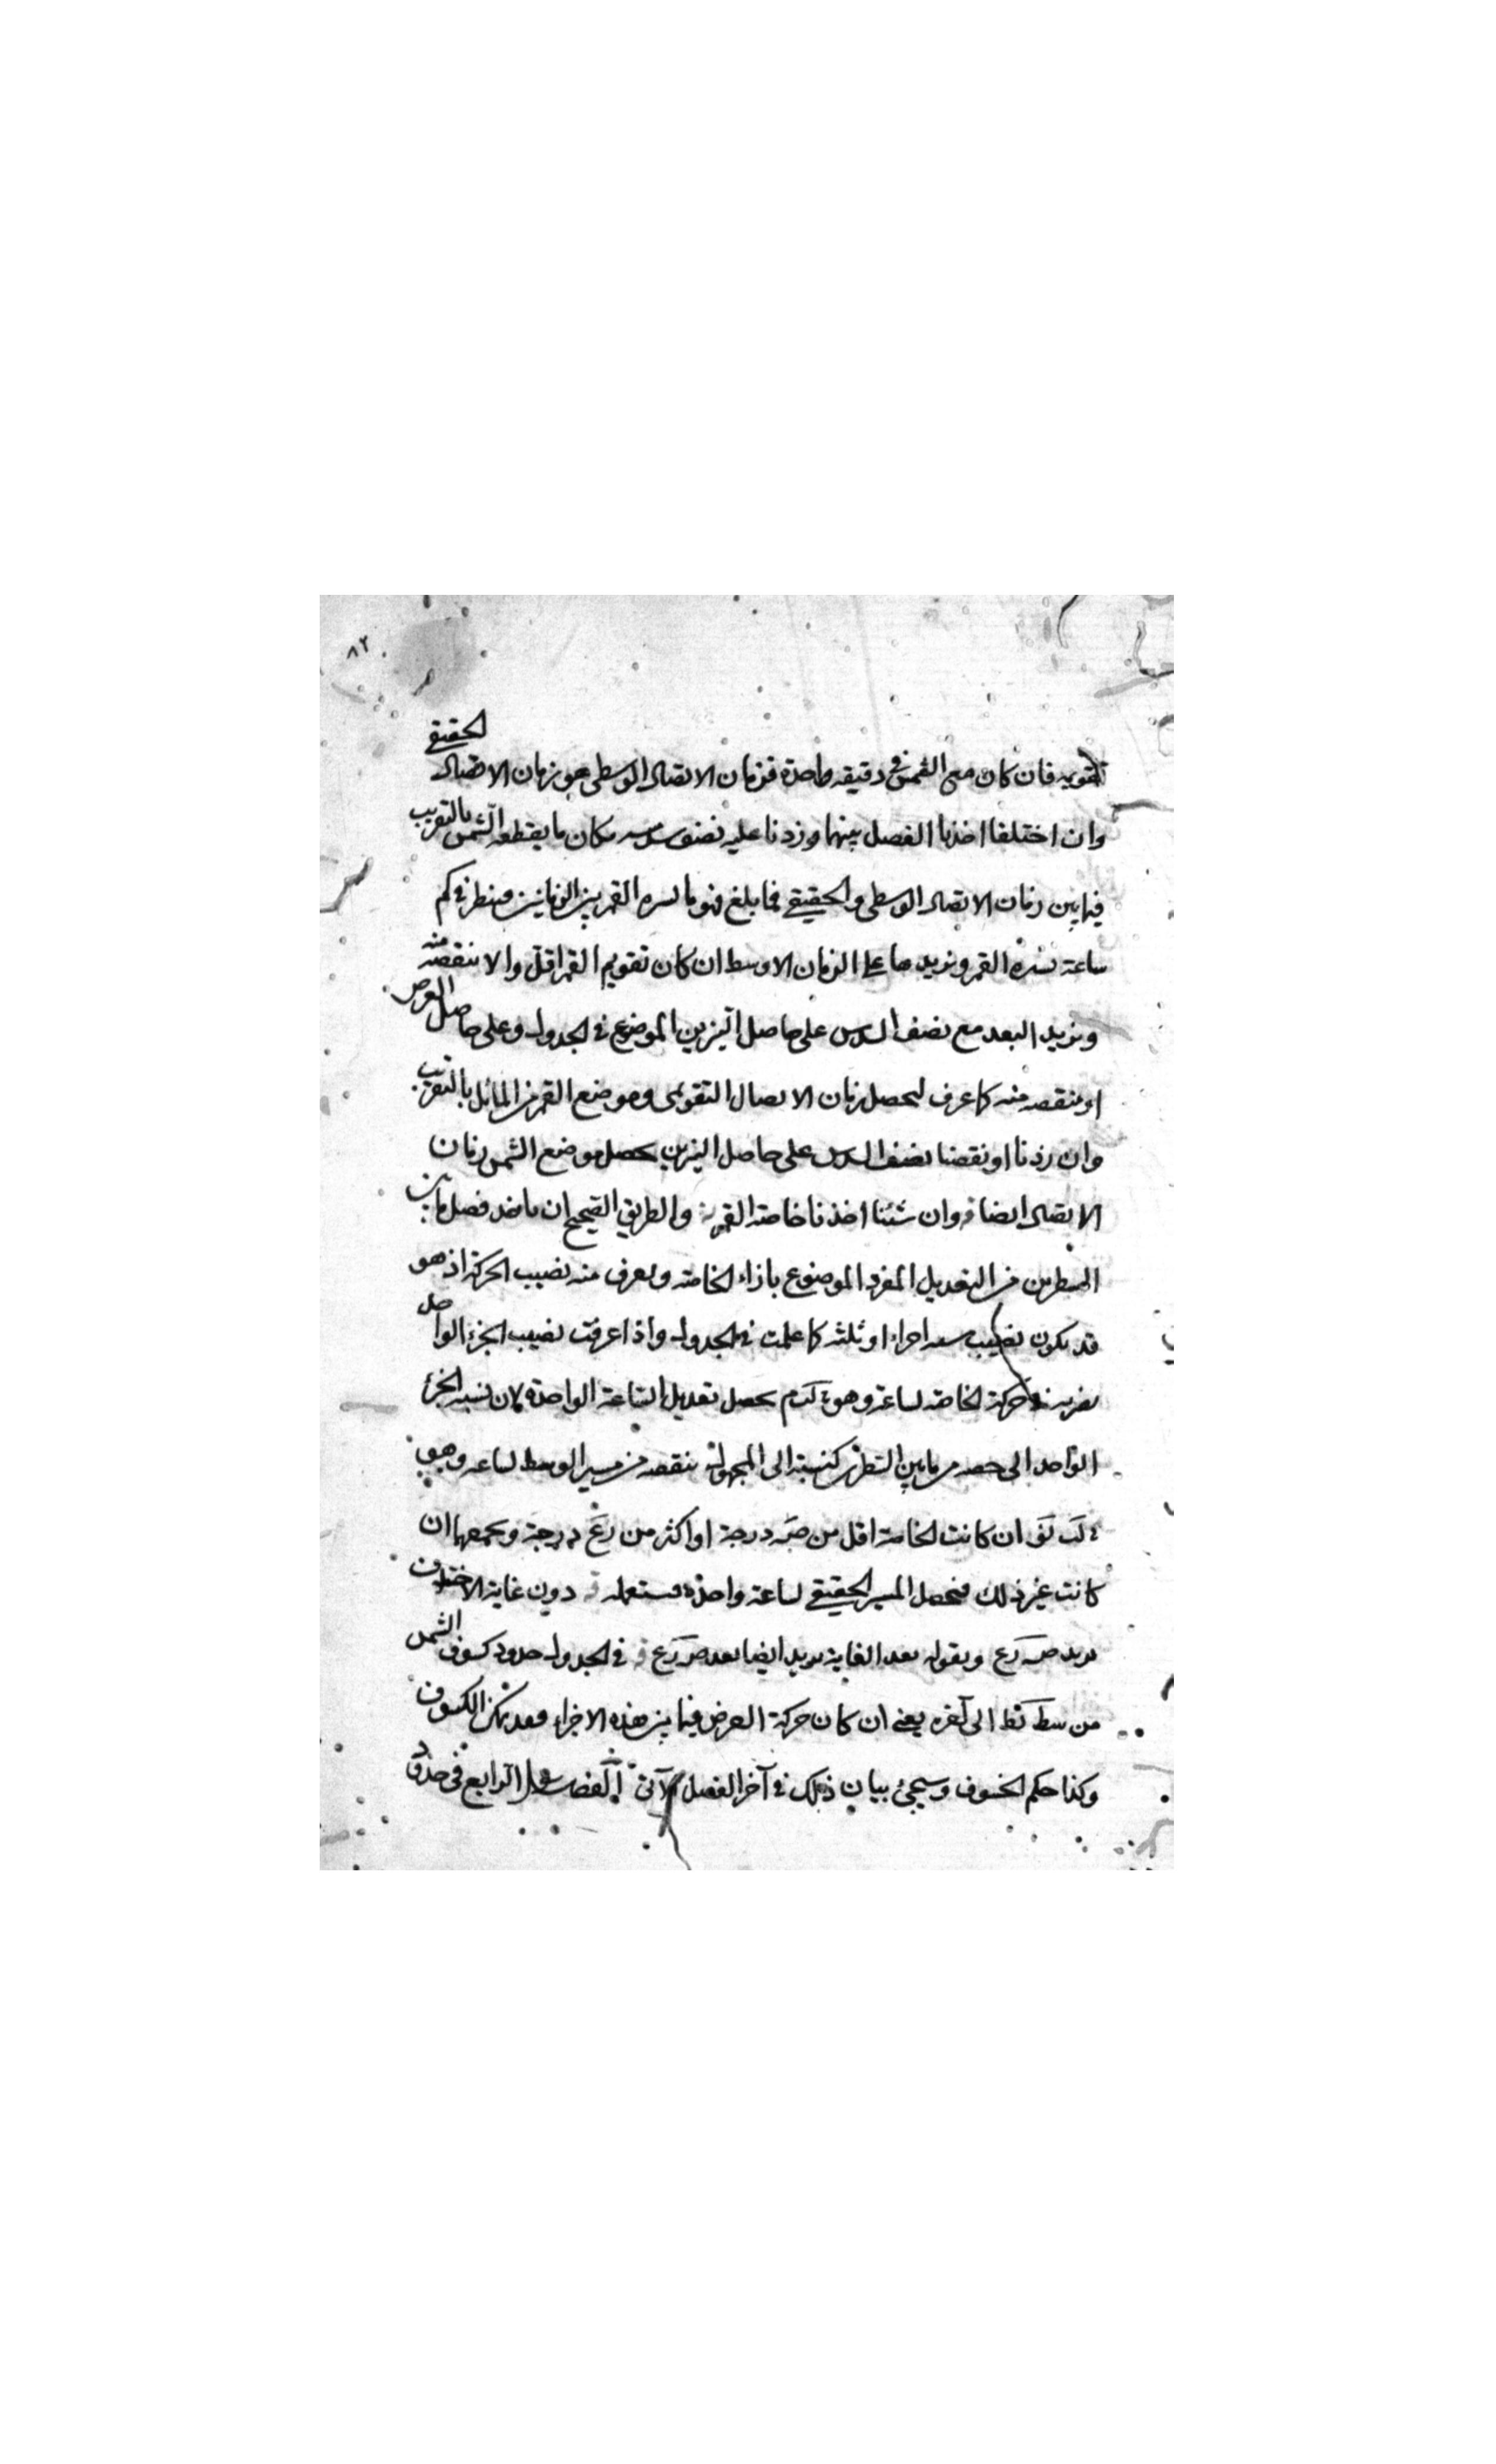 ٨٢
تقويمه فان كان مع الشمس في دقيقه واحدة فزمان الاتصال الوسطى هو زمان الاتصال الحقيقي
وان اختلفا اخذنا الفصل بينهما وزدنا عليه نصف سدسه مكان ما يقطعه الشمس بالتقريب
فيما بين زمان الاتصال الوسطى والحقيقي فما بلغ فهو ما يسره القمر بين الزمانين فينظر في كم
ساعة يسره القمر ونزيدها على الزمان الاوسط ان كان تقويم القمر اقل والا ننقصه منه
ونزيد البعد مع نصف السدس على حاصل النيرين الموضوع في الجدول وعلى حاصل العرض
او ننقصه منه كما عرف ليحصل زمان الاتصال التقويمى وموضع القمر من المائل بالتقريب
وان زدنا او نقصنا نصف السدس على حاصل النيرين يحصل موضع الشمس زمان
الاتصال ايضا وان شئنا اخذنا خاصة القمر والطريق الصحيح ان ناخذ فصل ما بين
السطرين من التعديل المفرد الموضوع بازاء الخاصة ونعرف منه نصيب الحركة اذ هو
قد يكون نصيب سته اجزاء او ثلثه كما علمت في الجدول واذا عرفت نصيب الجزء الواحد
نضربه في حركة الخاصه لساعة وهو ٠ لب م يحصل تعديل الساعة الواحدة لان نسبه الجزء
الواحد الى حصه من ما بين السطرين كنسبته الى المجهول ننقصه من مسير الوسط لساعه وهو
٠ لب نو ان كانت الخاصة اقل من صه درجة او اكثر من رع درجة ونجمعهما ان
كانت غير ذلك فيحصل المسير الحقيقي لساعة واحدة فنستعمله دون غاية الاختلاف
يريد صه رع وبقوله بعد الغاية يريد ايضا بعد صه رع في الجدول حدود كسوف الشمس
من سط نط الى آخره يعني ان كان حركة العرض فيما بين هذه الاجزاء فقد يمكن الكسوف
وكذا حكم الخسوف وسيجئ بيان ذلك في آخر الفصل الآتى الفصل الرابع في حدود